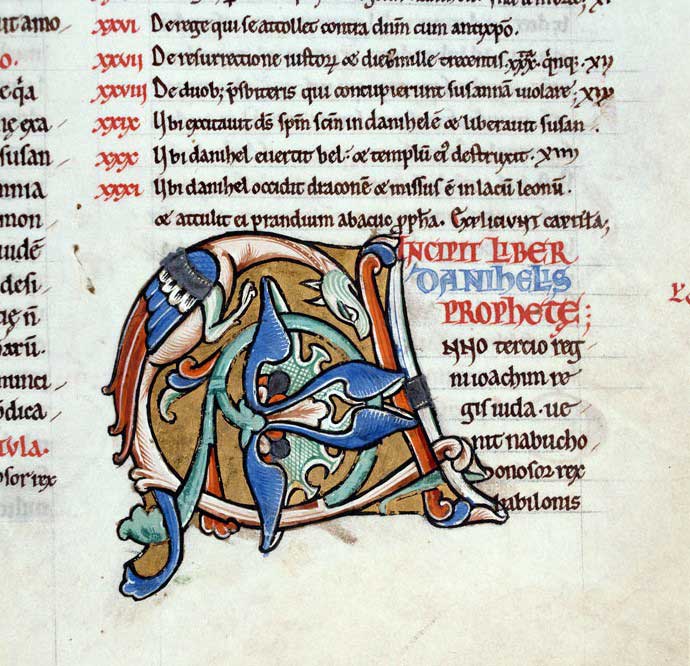 ut amo
o.
e q̄a
nię exa
susan
mnia
mon
uidē
desi
cię ñ
harū.
nunci
ōdica
tula.
osor rex
xxvi De rege qui se attollet contra dn̄m cum antix̄po.
xxvii De resurrectione iustoꝝ
xxviii De duob; p̄sbiteris qui concupierunt susannā uiolare;
xxix Ubi excitauit dꝰ sp̄m sc̄m in danihelē & liberauit susan .
xxx Ubi danihel euertit bel . & templū eiꝰ destruxit . xiiii
xxxi Ubi danihel occidit draconē & missus ē in lacū leonū .
& attulit ei prandium abacuc ꝓpħa . Expliciunt capitła,
Incipit liber
Danihelis
Prophetę;
ANNO tercio reg
ni ioachim re
gis iuda . ue
nit nabucho
donosor rex
babilonis